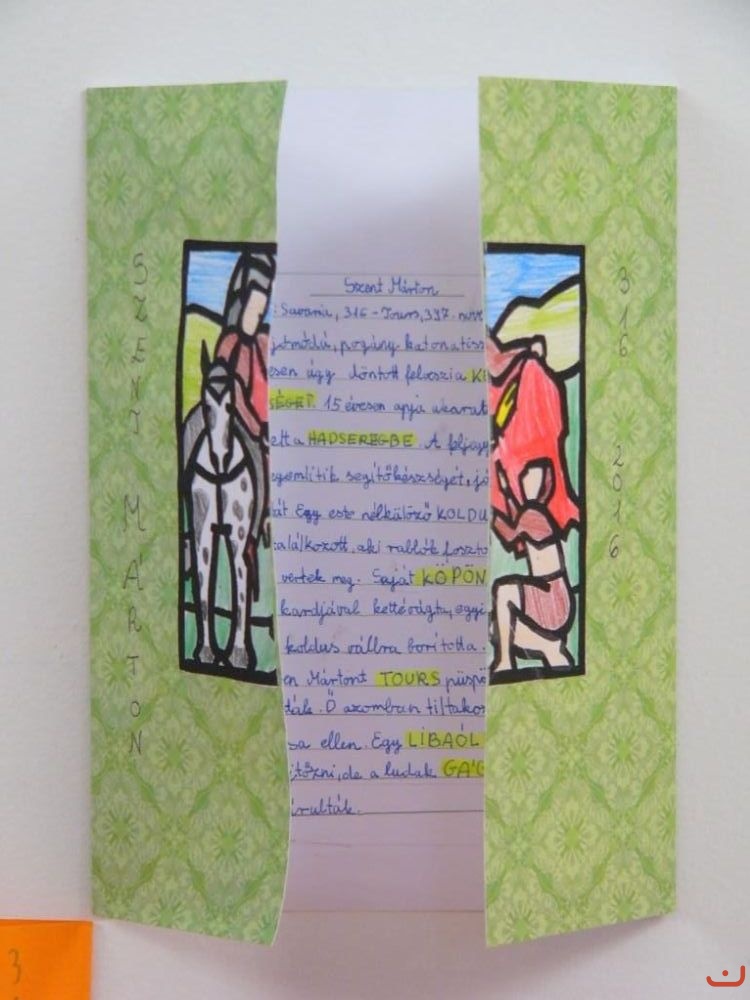 SZENT MÁRTON
Szent Márton
Savaria, 316 - Tours, 397. nov
jómódú, pogány katonatiss
esen úgy döntött felveszi a KE
SÉGET. 15 évesen apja akarat
ett a HADSEREGBE. A feljegy
egemlítik segítőkészségét, jó
át Egy este nélkülöző KOLDU
találkozott, aki rablók foszto
vertek meg. Saját KÖPÖN
kardjával kettévágta, egyi
koldus vállra borította.
en Mártont TOURS püspö
ták. Ő azomban tiltakoz
sa ellen. Egy LIBAÓL
jtőzni, de a ludak GÁG
árulták.
316
2016
3